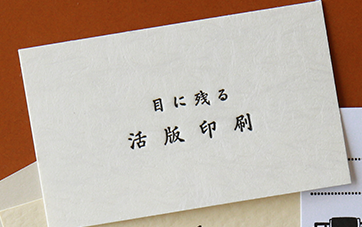 目に残る
活版印刷